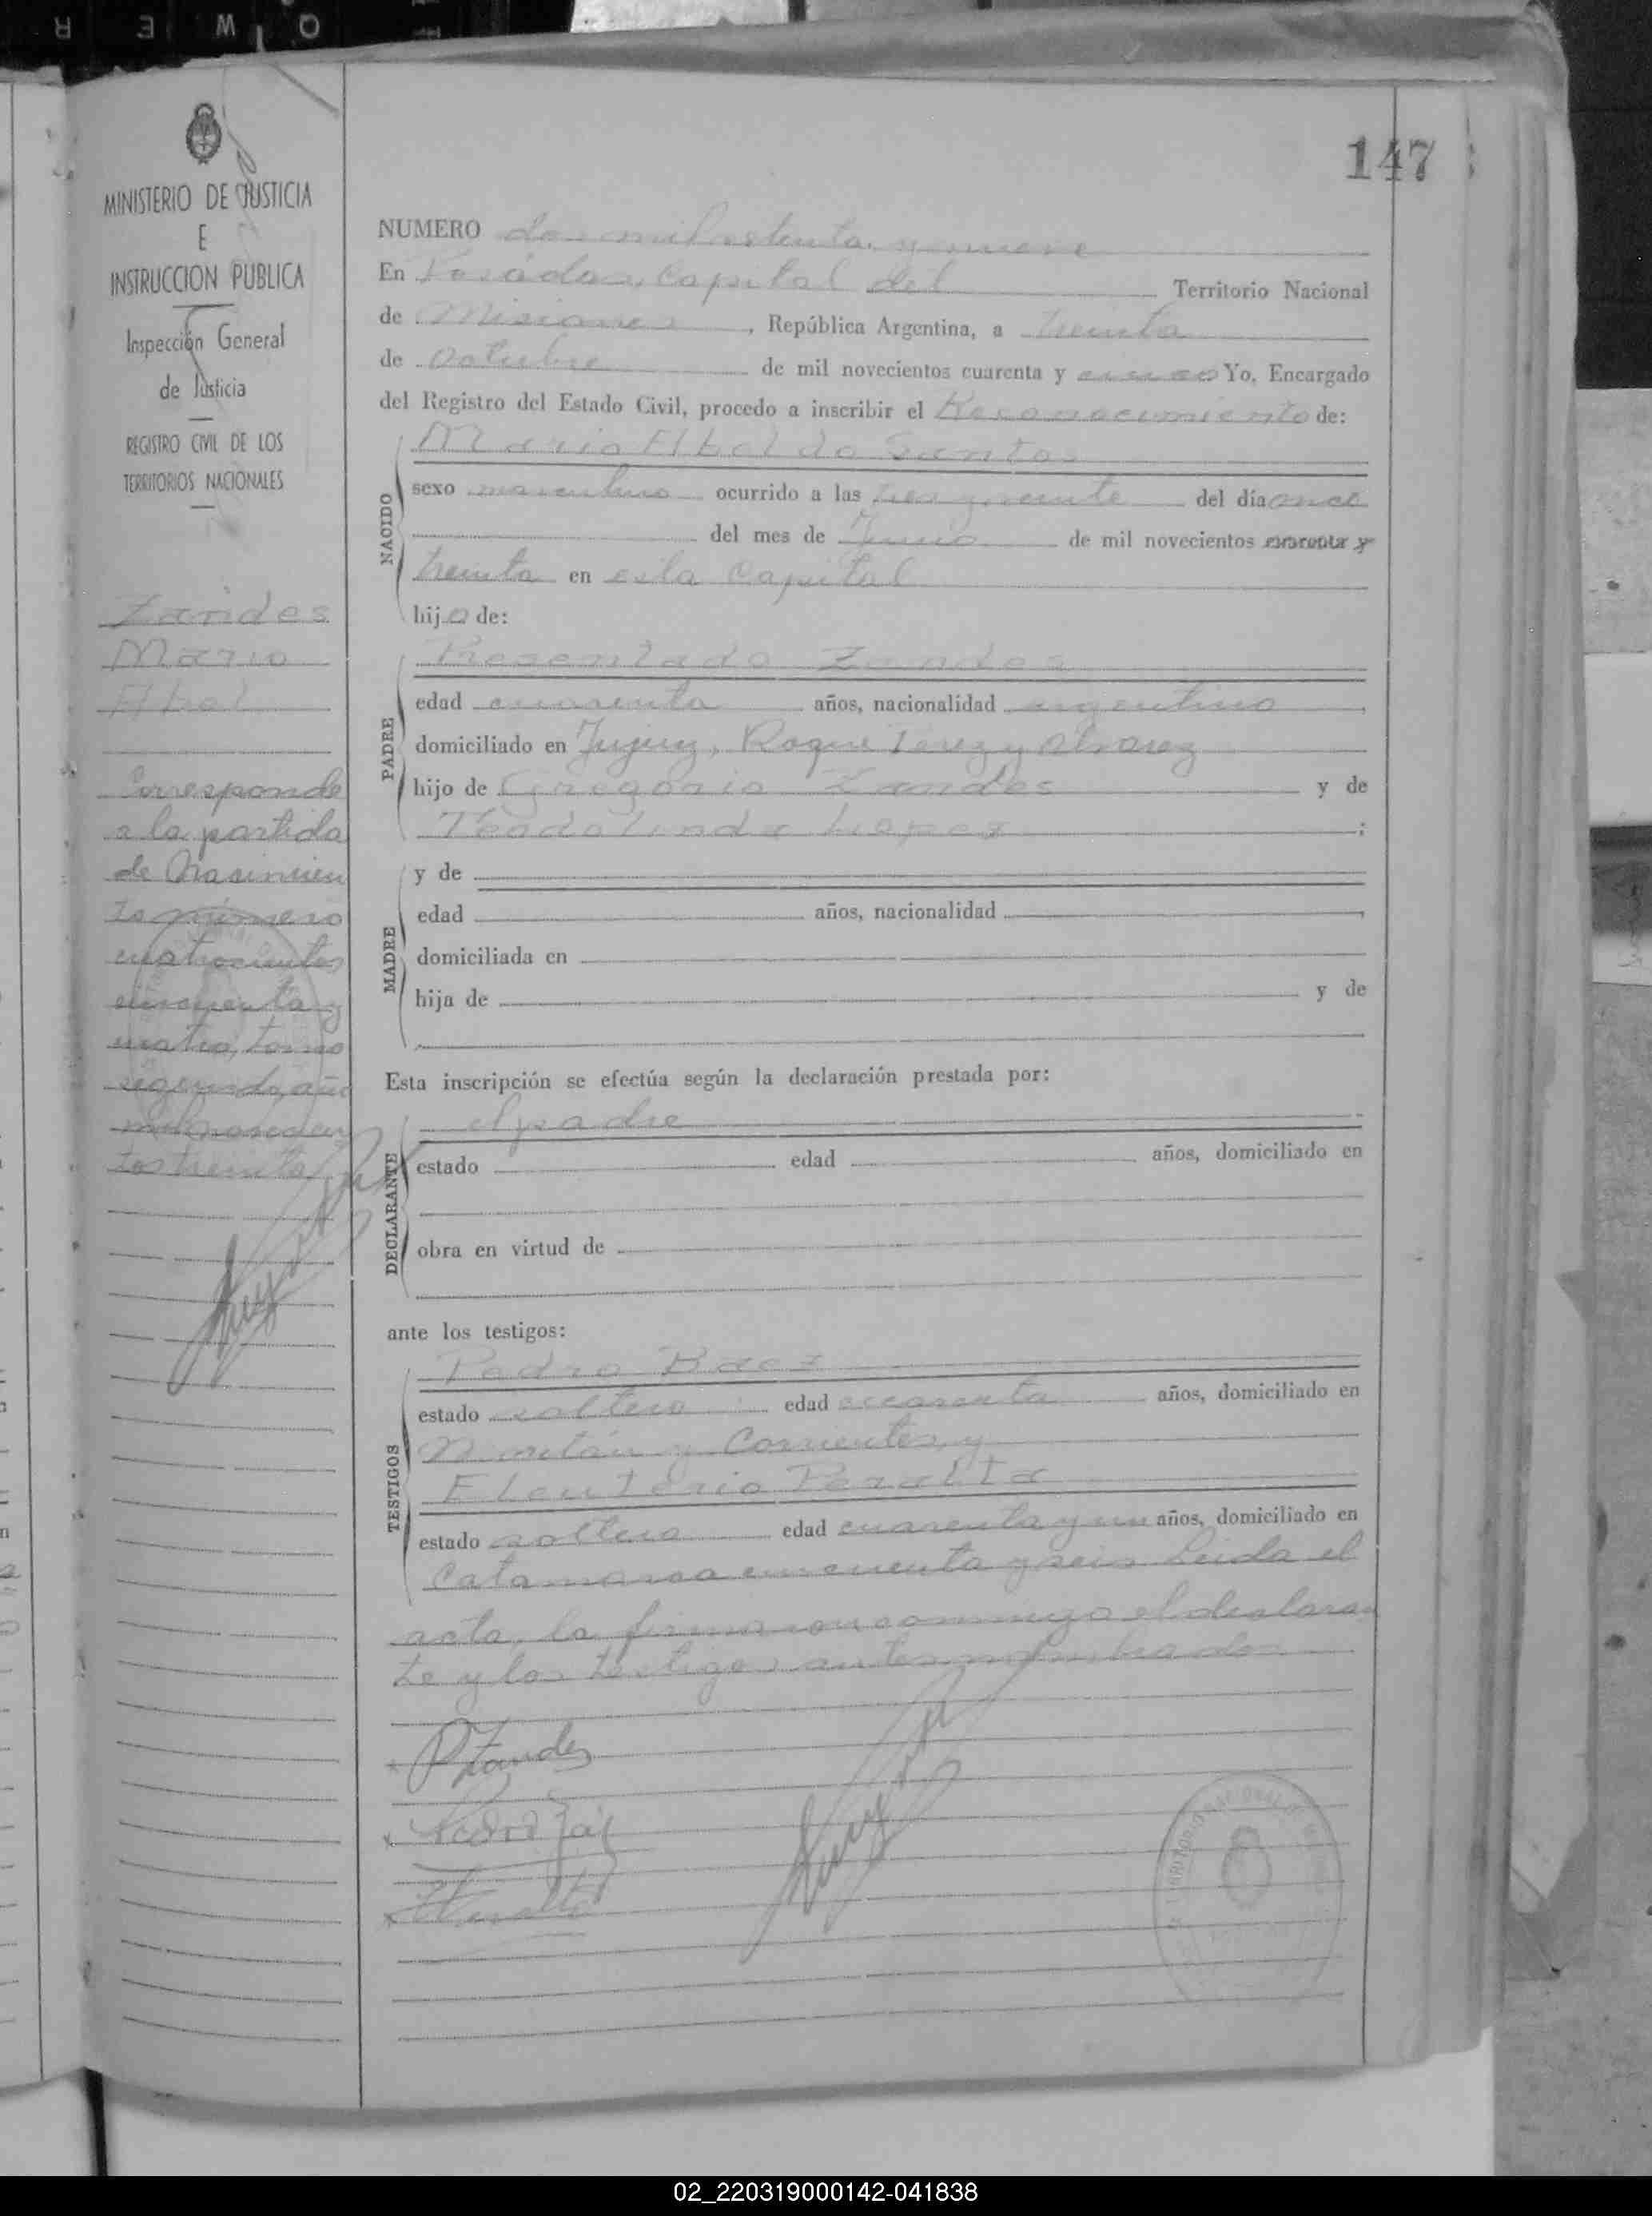 147
MINISTERIO DE JUSTICIA
E
INSTRUCCION PUBLICA
Inspección General
de Justicia
REGISTRO CIVIL DE LOS
TERRITORIOS NACIONALES
Zandes
Mario
Corresponde
a la partida
de Nacimien
to número
cuatrocientos
cincuenta y
cuatro, tomo
segundo, año
mil novecien
tos treinta
NUMERO dos mil setenta y nueve
En Posadas, Capital del Territorio Nacional
de Misiones, República Argentina, a treinta
de Octubre de mil novecientos cuarenta y cinco Yo, Encargado
del Registro del Estado Civil, procedo a inscribir el Reconocimiento de:
Mario Santos
NACIDO
sexo masculino ocurrido a las tres y veinte del día once
del mes de Junio de mil novecientos cuarenta y
treinta en esta Capital
hijo de:
PADRE
Presentado Zandes
edad cuarenta años, nacionalidad argentino
domiciliado en Jujuy, Roque Perez y Alvarez
hijo de Gregorio Zandes y de
Teodolinda Lopez;
MADRE
y de
edad años, nacionalidad
domiciliada en
hija de y de
Esta inscripción se efectúa según la declaración prestada por:
DECLARANTE
el padre
estado edad años, domiciliado en
obra en virtud de
ante los testigos:
TESTIGOS
Pedro Baez
estado soltero edad cuarenta años, domiciliado en
y Corrientes, y
Eleuterio Peralta
estado soltero edad cuarenta y un años, domiciliado en
Catamarca cincuenta y seis Leida el
acta, la firmaron conmigo el declaran
te y los testigos antes nombrados
P Zandes
02_220319000142-041838